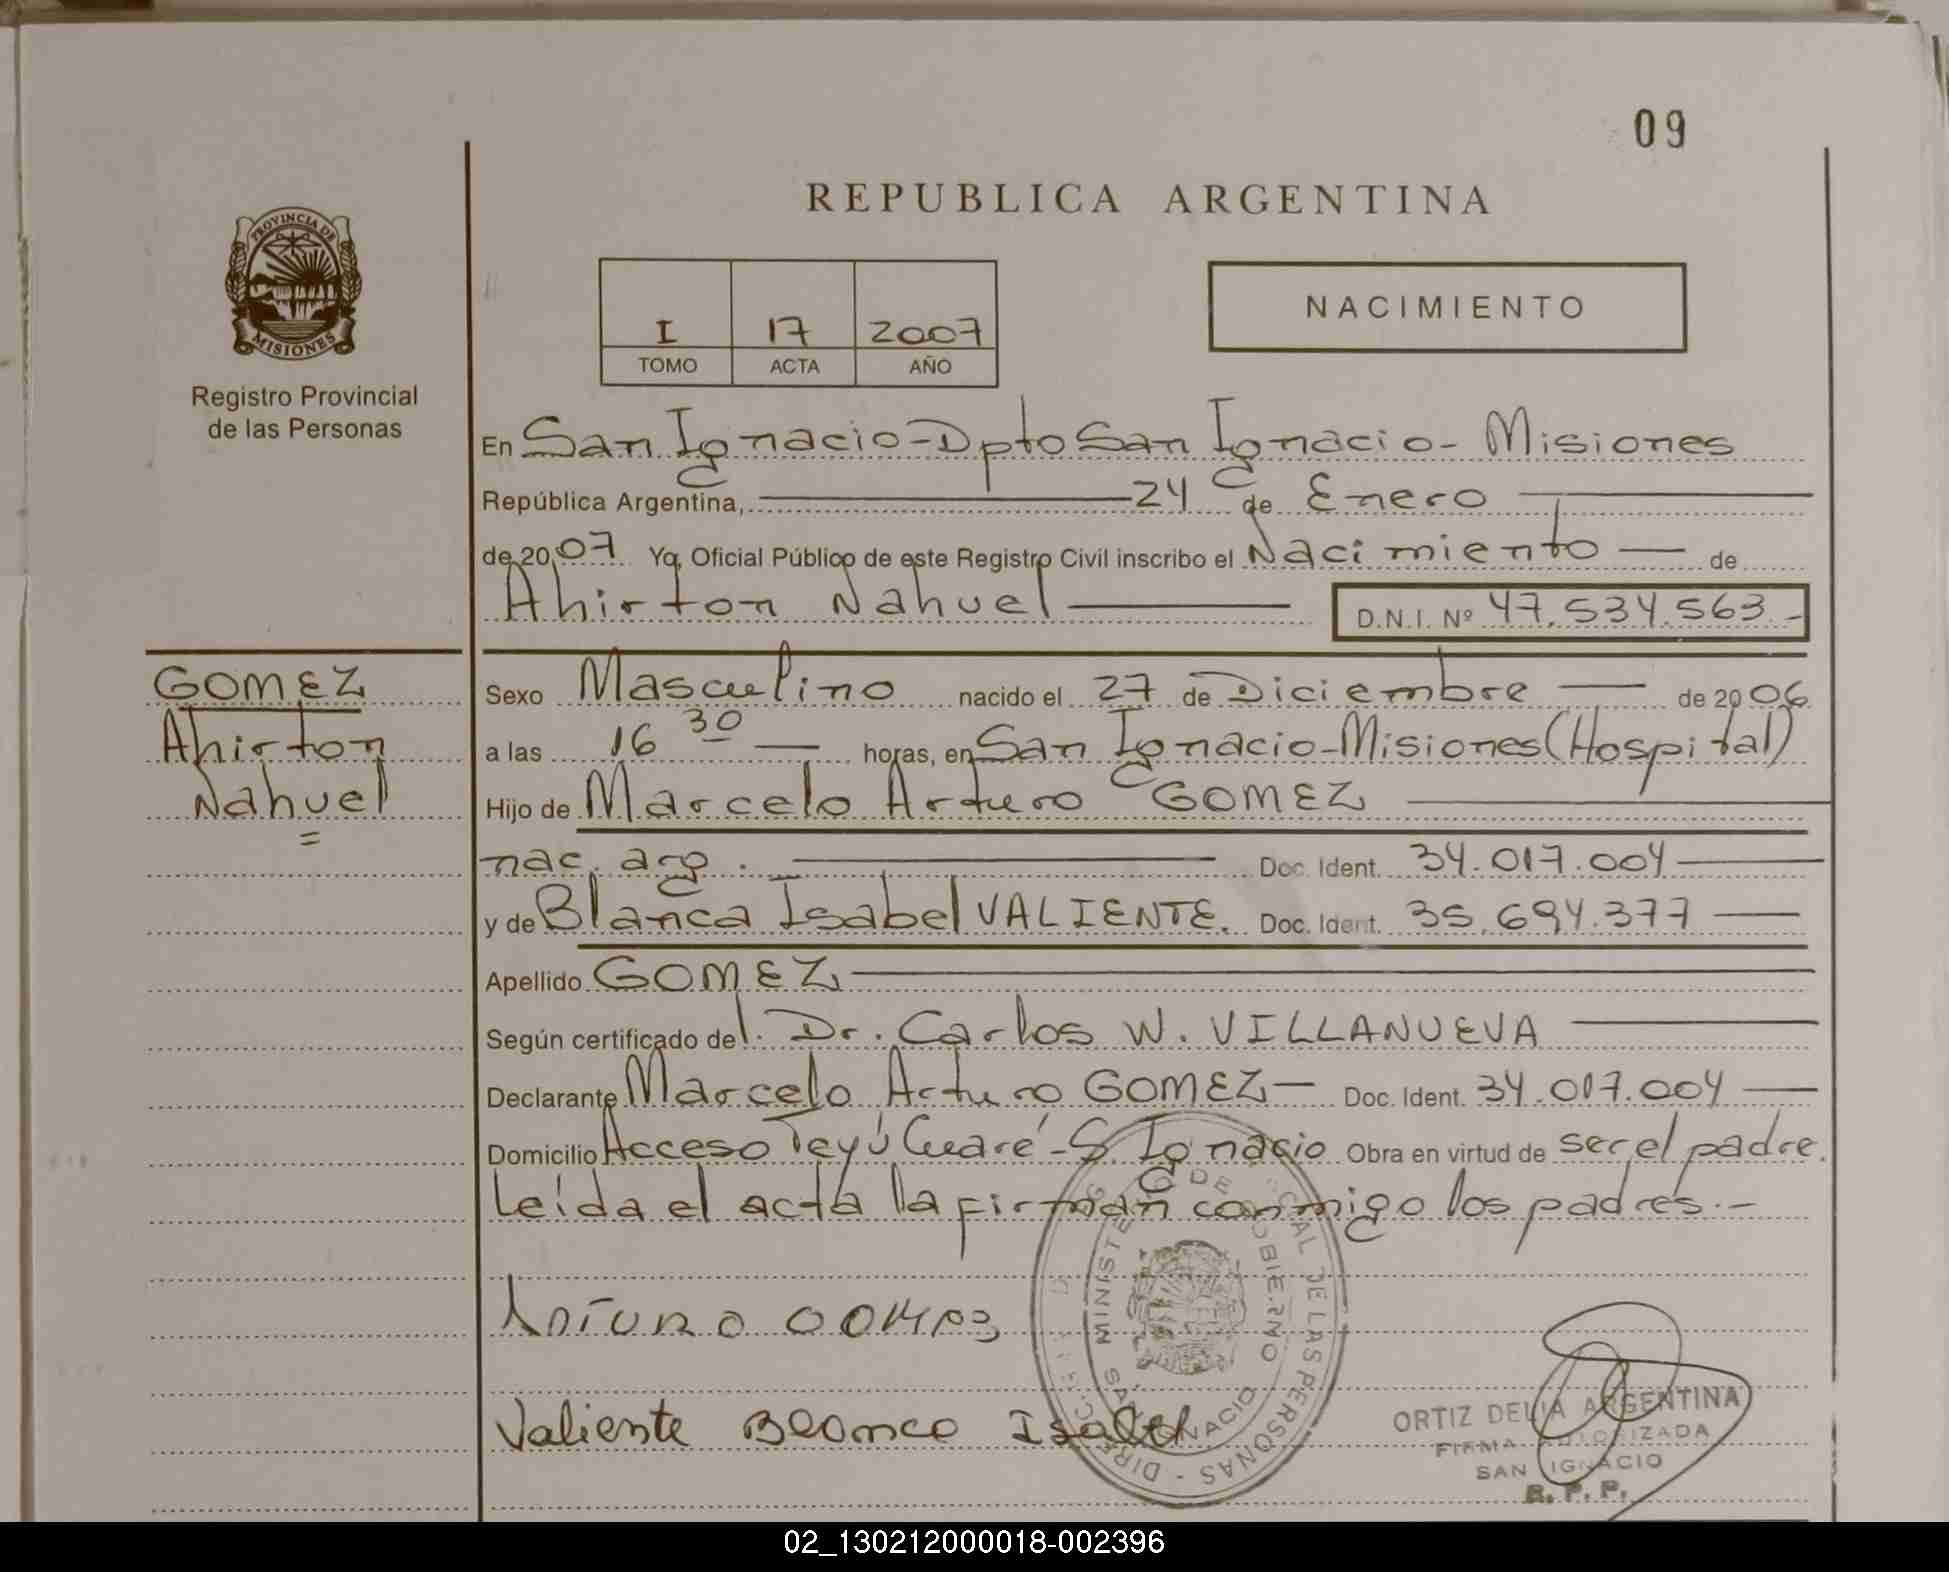 09
REPUBLICA ARGENTINA
PROVINCIA DE
MISIONES
Registro Provincial
de las Personas
I 17 2007
TOMO ACTA AÑO
NACIMIENTO
En San Ignacio - Dpto San Ignacio - Misiones
República Argentina, 24 de Enero
de 2007 Yo, Oficial Público de este Registro Civil inscribo el Nacimiento — de
Ahirton Nahuel
D.N.I. Nº 47.534.563.-
GOMEZ
Ahirton
Nahuel
Sexo Masculino nacido el 27 de Diciembre — de 2006
a las 16 30 — horas, en San Ignacio - Misiones (Hospital)
Hijo de Marcelo Arturo GOMEZ
nac. arg. Doc. Ident. 34.017.004
y de Blanca Isabel VALIENTE. Doc. Ident. 35.694.377
Apellido GOMEZ
Según certificado del. Dr. Carlos W. VILLANUEVA
Declarante Marcelo Arturo GOMEZ — Doc. Ident. 34.017.004
Domicilio Acceso Teyú Cuaré - S. Ignacio Obra en virtud de ser el padre.
Leída el acta la firman conmigo los padres.-
Valiente Blanca Isabel
MINISTERIO DE GOBIERNO
SAN IGNACIO
DE LAS PERSONAS
ORTIZ DELIA ARGENTINA
FIRMA AUTORIZADA
SAN IGNACIO
R. P. P.
02_130212000018-002396